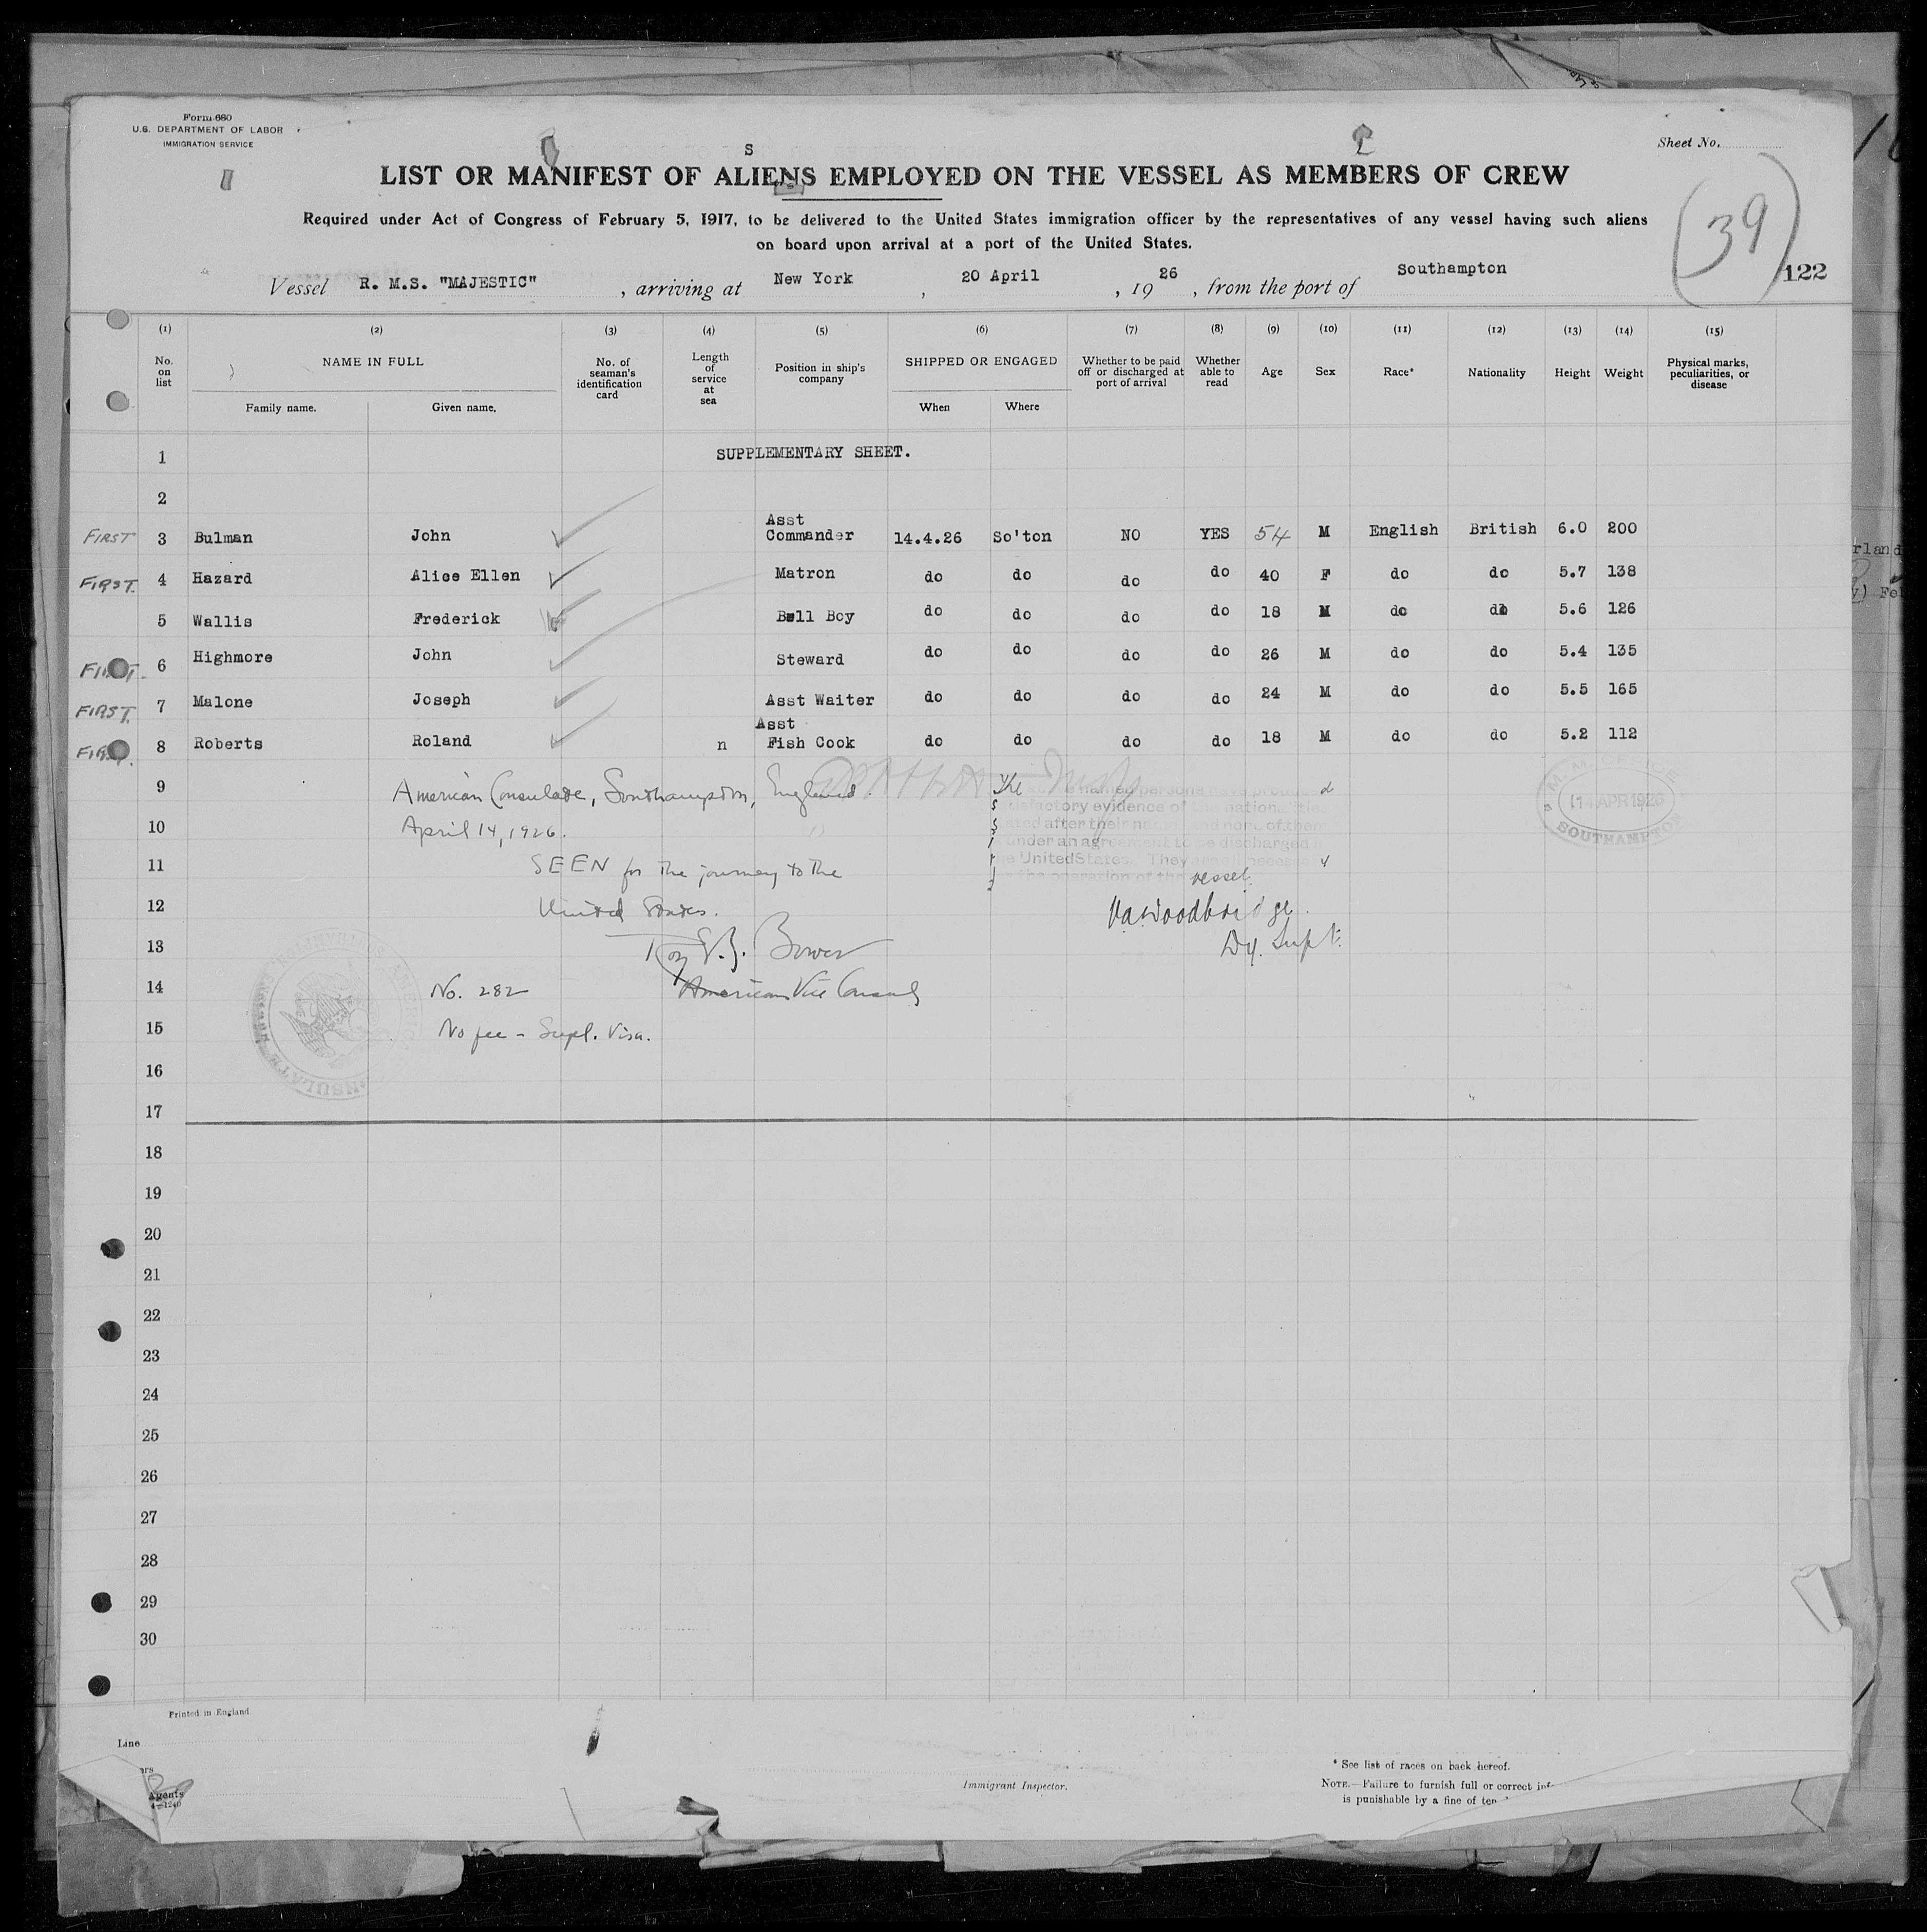 Form 680
U.S. DEPARTMENT OF LABOR
IMMIGRATION SERVICE
S
Sheet No.
LIST OR MANIFEST OF ALIENS EMPLOYED ON THE VESSEL AS MEMBERS OF CREW
Required under Act of Congress of February 5, 1917, to be delivered to the United States immigration officer by the representatives of any vessel having such aliens
on board upon arrival at a port of the United States.
(39)
122
Vessel R. M.S. "MAJESTIC" , arriving at New York , 20 April , 1926 , from the port of Southampton
(1) (2) (3) (4) (5) (6) (7) (8) (9) (10) (11) (12) (13) (14) (15)
No. on list NAME IN FULL Family name. Given name. No. of seaman's identification card Length of service at sea Position in ship's company SHIPPED OR ENGAGED When Where Whether to be paid off or discharged at port of arrival Whether able to read Age Sex Race* Nationality Height Weight Physical marks, peculiarities, or disease
1 SUPPLEMENTARY SHEET.
2
FIRST 3 Bulman John Asst Commander 14.4.26 So'ton NO YES 54 M English British 6.0 200
FIRST. 4 Hazard Alice Ellen Matron do do do do 40 F do do 5.7 138
5 Wallis Frederick Bell Boy do do do do 18 M do do 5.6 126
FIRST. 6 Highmore John Steward do do do do 26 M do do 5.4 135
FIRST. 7 Malone Joseph Asst Waiter do do do do 24 M do do 5.5 165
FIRST. 8 Roberts Roland n Asst Fish Cook do do do do 18 M do do 5.2 112
9 American Consulate, Southampton, England.
The named persons have
satisfactory evidence of nationalities
10 April 14, 1926.
after their and none of them
under an agreement to be discharged
11 SEEN for the journey to the
the United States. They
the operation of the vessel.
M.M. OFFICE
14 APR 1926
SOUTHAMPTON
12 United States.
Woodbridge.
Dy. Supt.
13 Roy E. B. Bower
14 No. 282 American Vice Consul
15 No fee - Supl. Visa.
16
17
18
19
20
21
22
23
24
25
26
27
28
29
30
Printed in England.
Line
Agents
4—1240
Immigrant Inspector.
* See list of races on back hereof.
NOTE.—Failure to furnish full or correct
is punishable by a fine of ten